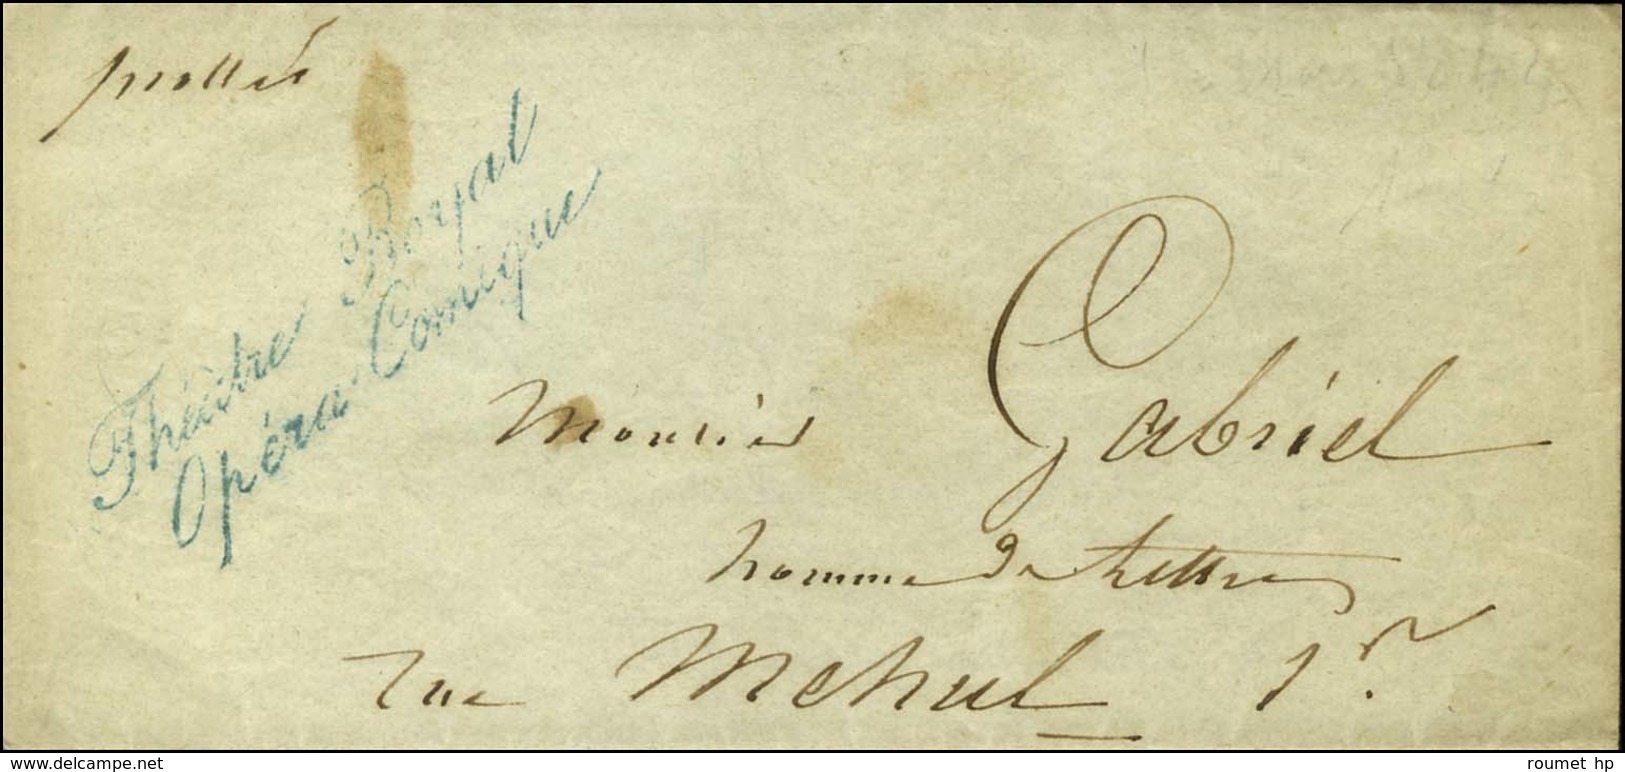 pressée
Théâtre Royal
Opéra-Comique
Monsieur Gabriel
homme de Lettres
rue Mehul 1.r
delcampe.net
roumet hp